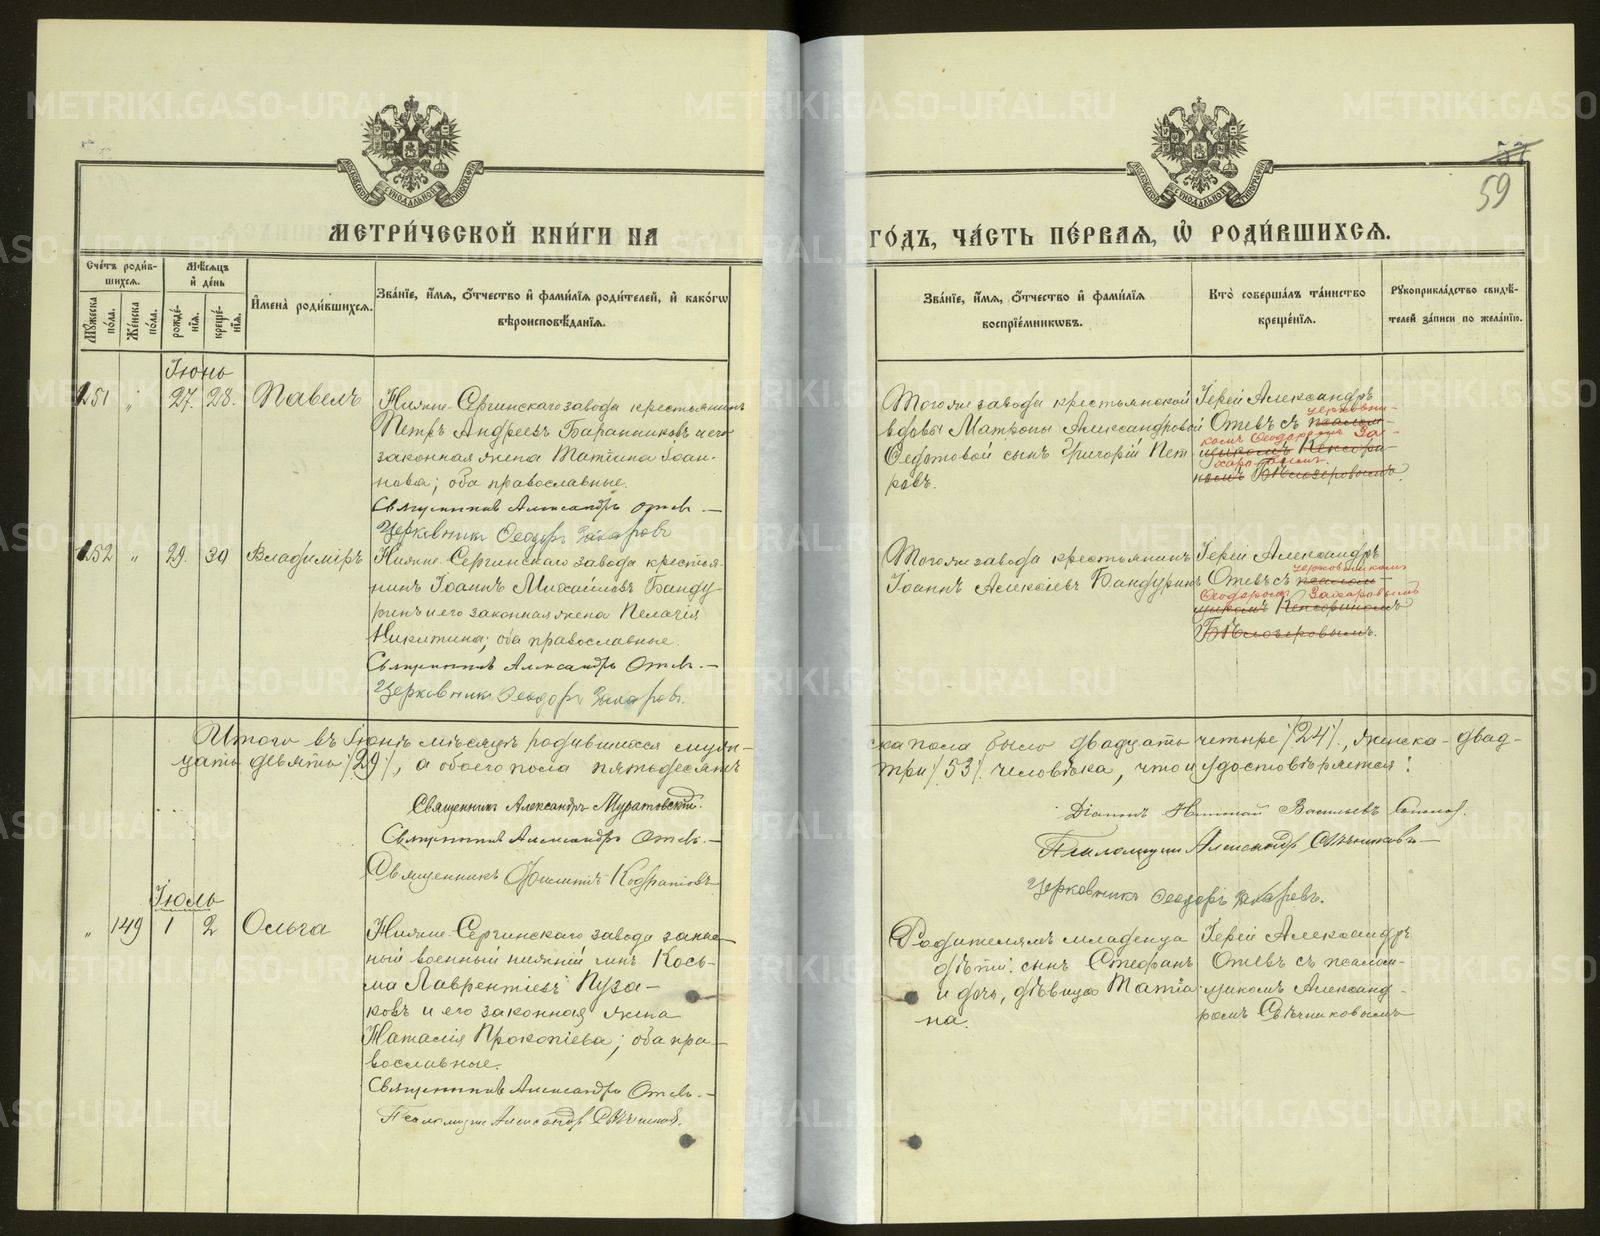 METRIKI.GASO-URAL.RU
57
59
МОСКОВСКОЙ СѴНОДАЛЬНОЙ ТИПОГРАФІИ
МЕТРИ́ЧЕСКОЙ КНИ́ГИ НА
ГО́ДЪ, ЧА́СТЬ ПЕ́РВАЯ, Ѡ РОДИ́ВШИХСЯ.
Сче́тъ роди́в-
шихся.
Мꙋ́жеска по́ла.
Же́нска по́ла.
Мѣ́сяцъ и де́нь
рожде́-
нїя.
креще́-
нїя.
И̓мена̀ роди́вшихся.
Зва́нїе, и́мя, о́тчество и фами́лїя роди́телей, и како́гѡ
вѣроисповѣ́данїя.
Зва́нїе, и́мя, о́тчество и фами́лїя
воспрїе́мникѡвъ.
Кто̀ соверша́лъ та́инство
креще́нїя.
Рꙋкоприкла́дство свидѣ́-
телей за́писи по жела́нїю.
Іюнь
251 " 27. 28. Павелъ
Нижне-Сергинскаго завода крестьянинъ
Петръ Андреевъ Баранниковъ и его
законная жена Татіана Іоан-
нова; оба православные.
Священникъ Александръ Отевъ.
Церковникъ Ѳеодоръ Захаровъ
Того же завода крестьянской
вдовы Матроны Александровой
Ѳедотовой сынъ Григорій Пет
ровъ.
Іерей Александръ
Отевъ съ псалом-
церковни-
комъ Ѳеодоромъ За-
щикомъ
харовымъ.
Бѣлозеровымъ.
252 " 29. 30 Владиміръ
Нижне-Сергинскаго завода крестья-
нинъ Іоаннъ Михаиловъ Банду
ринъ и его законная жена Пелагія
Никитина; оба православные.
Священникъ Александръ Отевъ.
Церковникъ Ѳеодоръ Захаровъ.
Того же завода крестьянинъ
Іоаннъ Алексіевъ Бандуринъ
Іерей Александръ
Отевъ съ псалом-
церковникомъ
Ѳеодоромъ Захаровымъ
щикомъ
Бѣлозеровымъ.
Итого въ Іюнѣ мѣсяцѣ родившихся муж-
ска пола было двадцать четыре /24/, женска - двад-
цать девять /29/, а обоего пола пятьдесятъ
три /53/ человѣка, что и удостовѣряется:
Священникъ Александръ Муратовскій.
Священникъ Александръ Отевъ.
Священникъ Филиппъ Кодратовъ
Діаконъ Николай Васильевъ
Псаломщикъ Александръ Свѣчниковъ
Церковникъ Ѳеодоръ Захаровъ.
Іюль
" 149 1 2 Ольга
Нижне-Сергинскаго завода запас-
ный военный нижній чинъ Кось-
ма Лаврентіевъ Пуза-
ковъ и его законная жена
Наталія Прокопіева; оба пра-
вославные.
Священникъ Александръ Отевъ.
Псаломщикъ Александръ Свѣчниковъ.
Родителямъ младенца
дѣти: сынъ Стефанъ
и дочь, дѣвица Татіа
на.
Іерей Александръ
Отевъ съ псалом-
щикомъ Александ-
ромъ Свѣчниковымъ